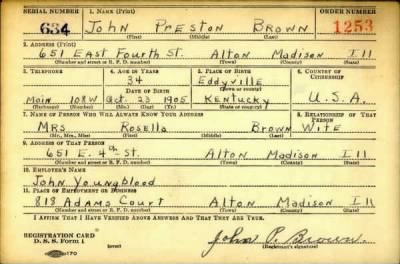 SERIAL NUMBER 1. NAME (Print) ORDER NUMBER
634 John Preston Brown 1253
(First) (Middle) (Last)
2. ADDRESS (Print)
651 East Fourth St. Alton Madison Ill
(Number and street or R. F. D. number) (Town) (County) (State)
3. TELEPHONE 4. AGE IN YEARS 5. PLACE OF BIRTH 6. COUNTRY OF CITIZENSHIP
34 Eddyville
DATE OF BIRTH (Town or county)
Main 108W Oct. 23 1905 Kentucky U.S.A.
(Exchange) (Number) (Mo.) (Day) (Yr.) (State or country)
7. NAME OF PERSON WHO WILL ALWAYS KNOW YOUR ADDRESS 8. RELATIONSHIP OF THAT PERSON
Mrs Rosella Brown Wife
(Mr., Mrs., Miss) (First) (Middle) (Last)
9. ADDRESS OF THAT PERSON
651 E. 4th St. Alton Madison Ill
(Number and street or R. F. D. number) (Town) (County) (State)
10. EMPLOYER'S NAME
John Youngblood
11. PLACE OF EMPLOYMENT OR BUSINESS
818 Adams Court Alton Madison Ill
(Number and street or R. F. D. number) (Town) (County) (State)
I AFFIRM THAT I HAVE VERIFIED ABOVE ANSWERS AND THAT THEY ARE TRUE.
REGISTRATION CARD
D. S. S. Form 1 John P. Brown.
(over) (Registrant's signature)